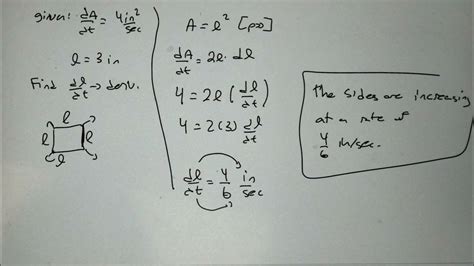 given: dA/dt = 4 in²/sec
l = 3 in
Find dl/dt → deriv.
l
l
l
l
A = l²
dA/dt = 2l · dl
4 = 2l (dl/dt)
4 = 2(3) dl/dt
dl/dt = 4/6 in/sec
The sides are increasing
at a rate of
4/6 in/sec.